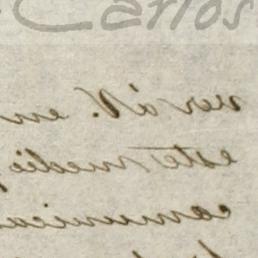 Carlos
ver á V. en
este medio
comunica